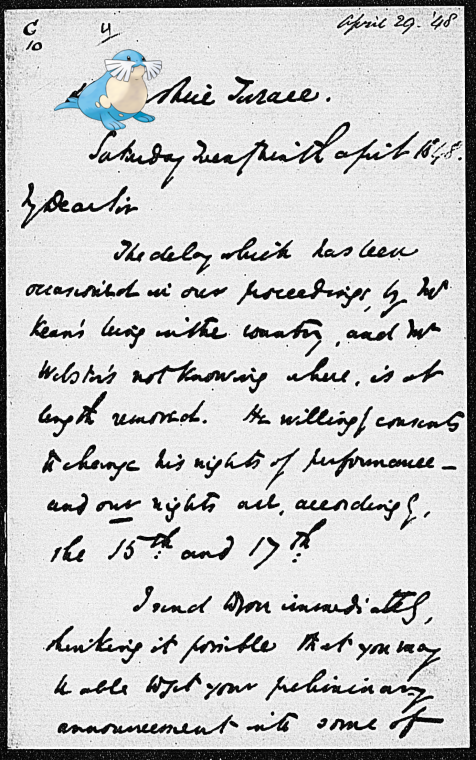 C
10
4
April 29. '48
shire Terrace.
Saturday Twenty Ninth April 1848.
My Dear Sir
The delay which has been
occasioned in our proceedings, by Mr
Kean's being in the country, and Mr
Webster's not knowing where, is at
length removed. He willingly consents
to change his nights of performance –
and our nights are, accordingly,
the 15th and 17th
I send down immediately,
thinking it possible that you may
be able to get your preliminary
announcement into some of